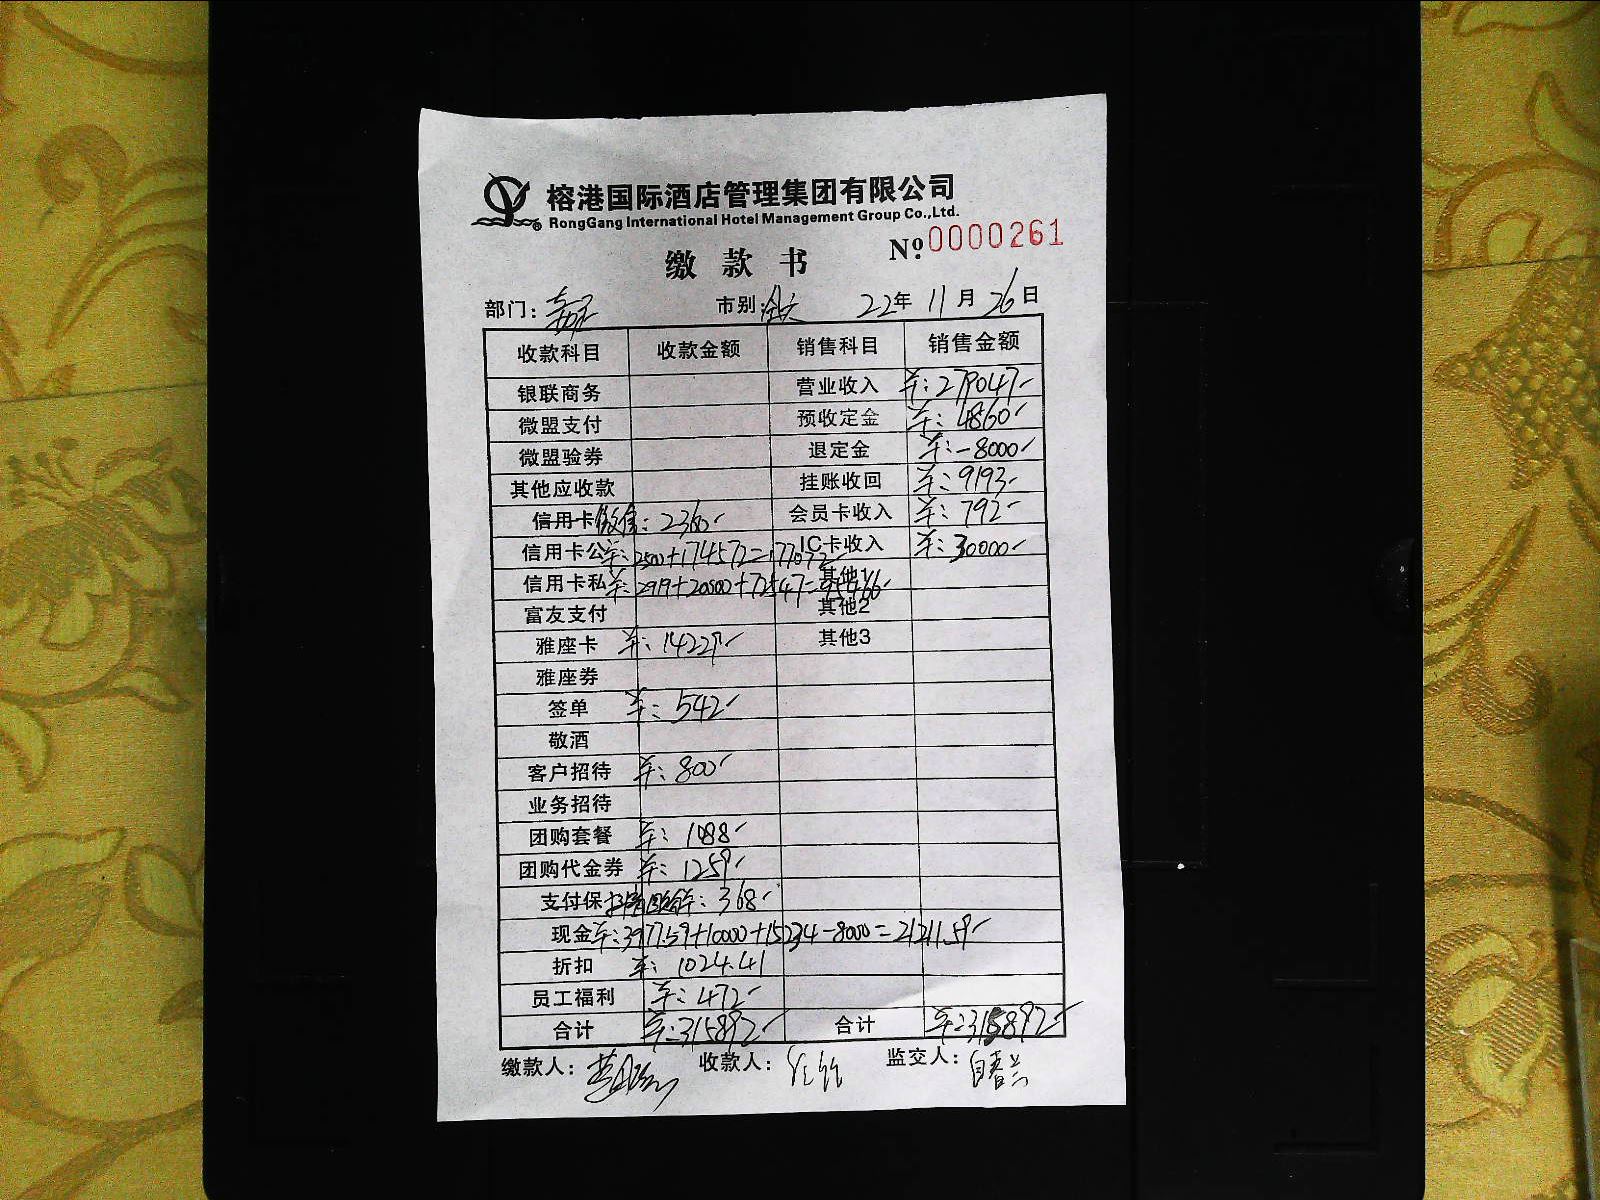 榕港国际酒店管理集团有限公司
RongGang International Hotel Management Group Co.,Ltd.
缴款书 Nº 0000261
部门: 市别: 22年 11月 26日
收款科目 收款金额 销售科目 销售金额
银联商务 营业收入 羊:279047-
微盟支付 预收定金 羊:4860-
微盟验券 退定金 羊:-8000-
其他应收款 挂账收回 羊:9193-
信用卡 微信:2360- 会员卡收入 羊:792-
信用卡公 羊:2500+174572=177072- IC卡收入 羊:30000-
信用卡私 羊:2919+20000+72547=95466- 其他1
富友支付 其他2
雅座卡 羊:14229- 其他3
雅座券
签单 羊:542-
敬酒
客户招待 羊:800-
业务招待
团购套餐 羊:1088-
团购代金券 羊:1259-
支付保 :368-
现金 羊:3977.59+10000+15234-8000=21211.59-
折扣 羊:1024.41
员工福利 羊:472-
合计 羊:315892- 合计 羊:315892-
缴款人: 收款人: 监交人: